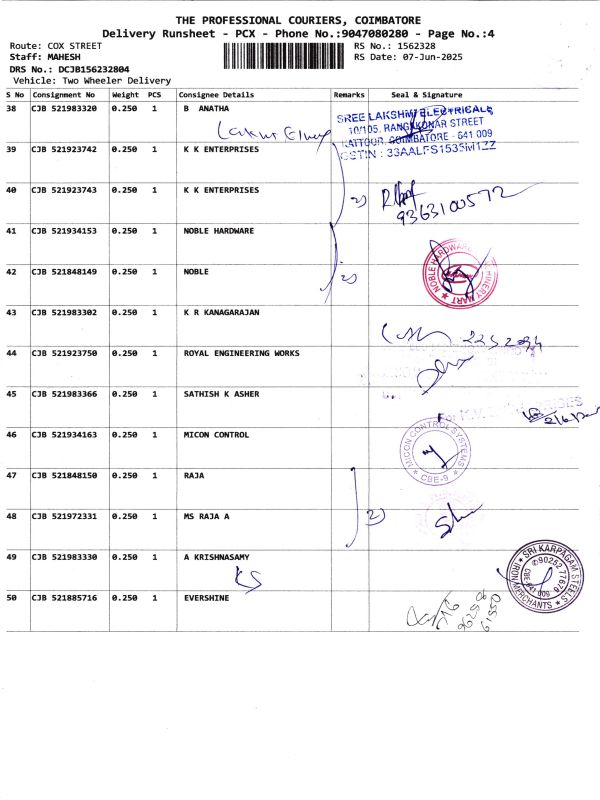 THE PROFESSIONAL COURIERS, COIMBATORE
Delivery Runsheet - PCX - Phone No.:9047080280 - Page No.:4
Route: COX STREET
RS No.: 1562328
Staff: MAHESH
RS Date: 07-Jun-2025
DRS No.: DCJB156232804
Vehicle: Two Wheeler Delivery
S No Consignment No Weight PCS Consignee Details Remarks Seal & Signature
38 CJB 521983320 0.250 1 B ANATHA
SREE LAKSHMI ELECTRICALS
10/105, RANGAKONAR STREET
KATTOOR, COIMBATORE - 641 009
GSTIN : 33AALFS1535M1ZZ
39 CJB 521923742 0.250 1 K K ENTERPRISES
40 CJB 521923743 0.250 1 K K ENTERPRISES
2)
9363100572
41 CJB 521934153 0.250 1 NOBLE HARDWARE
42 CJB 521848149 0.250 1 NOBLE
2)
NOBLE HARDWARE MACHINERY MART
43 CJB 521983302 0.250 1 K R KANAGARAJAN
44 CJB 521923750 0.250 1 ROYAL ENGINEERING WORKS
45 CJB 521983366 0.250 1 SATHISH K ASHER
46 CJB 521934163 0.250 1 MICON CONTROL
MICON CONTROL SYSTEMS
CBE-9
47 CJB 521848150 0.250 1 RAJA
48 CJB 521972331 0.250 1 MS RAJA A
2)
49 CJB 521983330 0.250 1 A KRISHNASAMY
KS
SRI KARPAGAM STEELS
90252 77676
CBE-641 009
IRON MERCHANTS
50 CJB 521885716 0.250 1 EVERSHINE